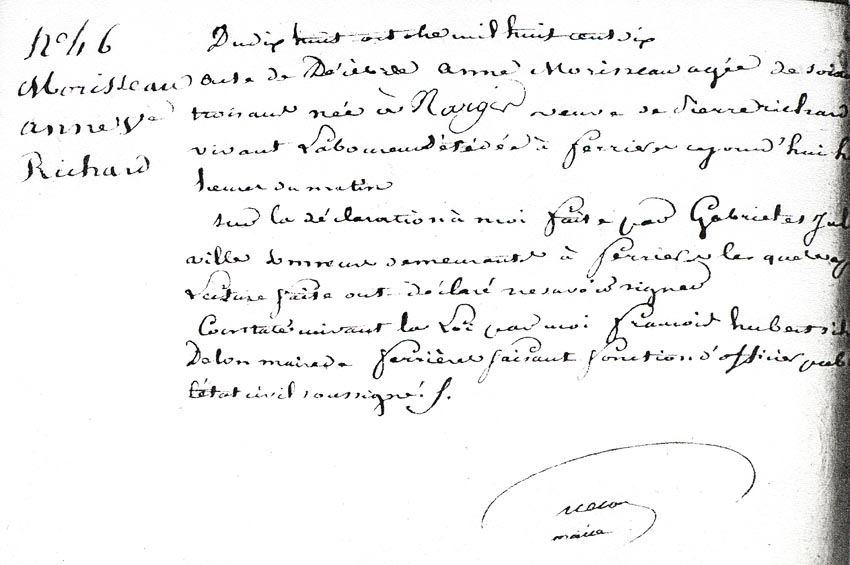 N° 46
Morisseau
anne Ve
Richard
Dudix huit octobre mil huit cent dix
acte de Décès de anne Morisseau agée de soixa
trois ans née à veuve de Pierre richard
vivant Laboureur décédée à ferriere cejourd'hui h
heures du matin
sur la déclaration à moi faite par Gabriel et Jul
ville demeurants à ferriere les quels
Lecture faite ont déclaré ne savoir signer
Constaté suivant la Loi par moi françois hubert
Delon maire de ferrières faisant fonction d'officier publ
l'état civil soussigné
maire